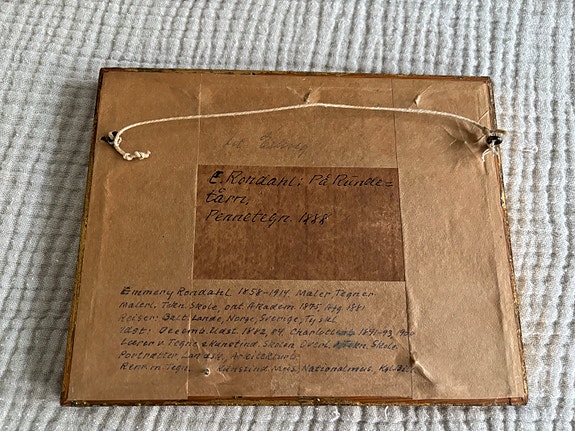 E. Rondahl: På Runde=
tårn.
Pennetegn. 1888
Emmery Rondahl. 1858-1914. Maler, Tegner
Maleri. Tekn. Skole, opt. Akadem. 1875, Afg. 1881
Rejser: Belt. Lande, Norge, Sverige, Tyskl.
Udst: Decemb. Udst. 1882, 84, Charlottenb. 1891-93,
Lærer v. Tegne. Skolen Tekn. Skole
Portrætter, Landsk., Arkitektur
Repr. m. Tegn. Kunstind. Mus., Nationalmus., Kgl. Bi